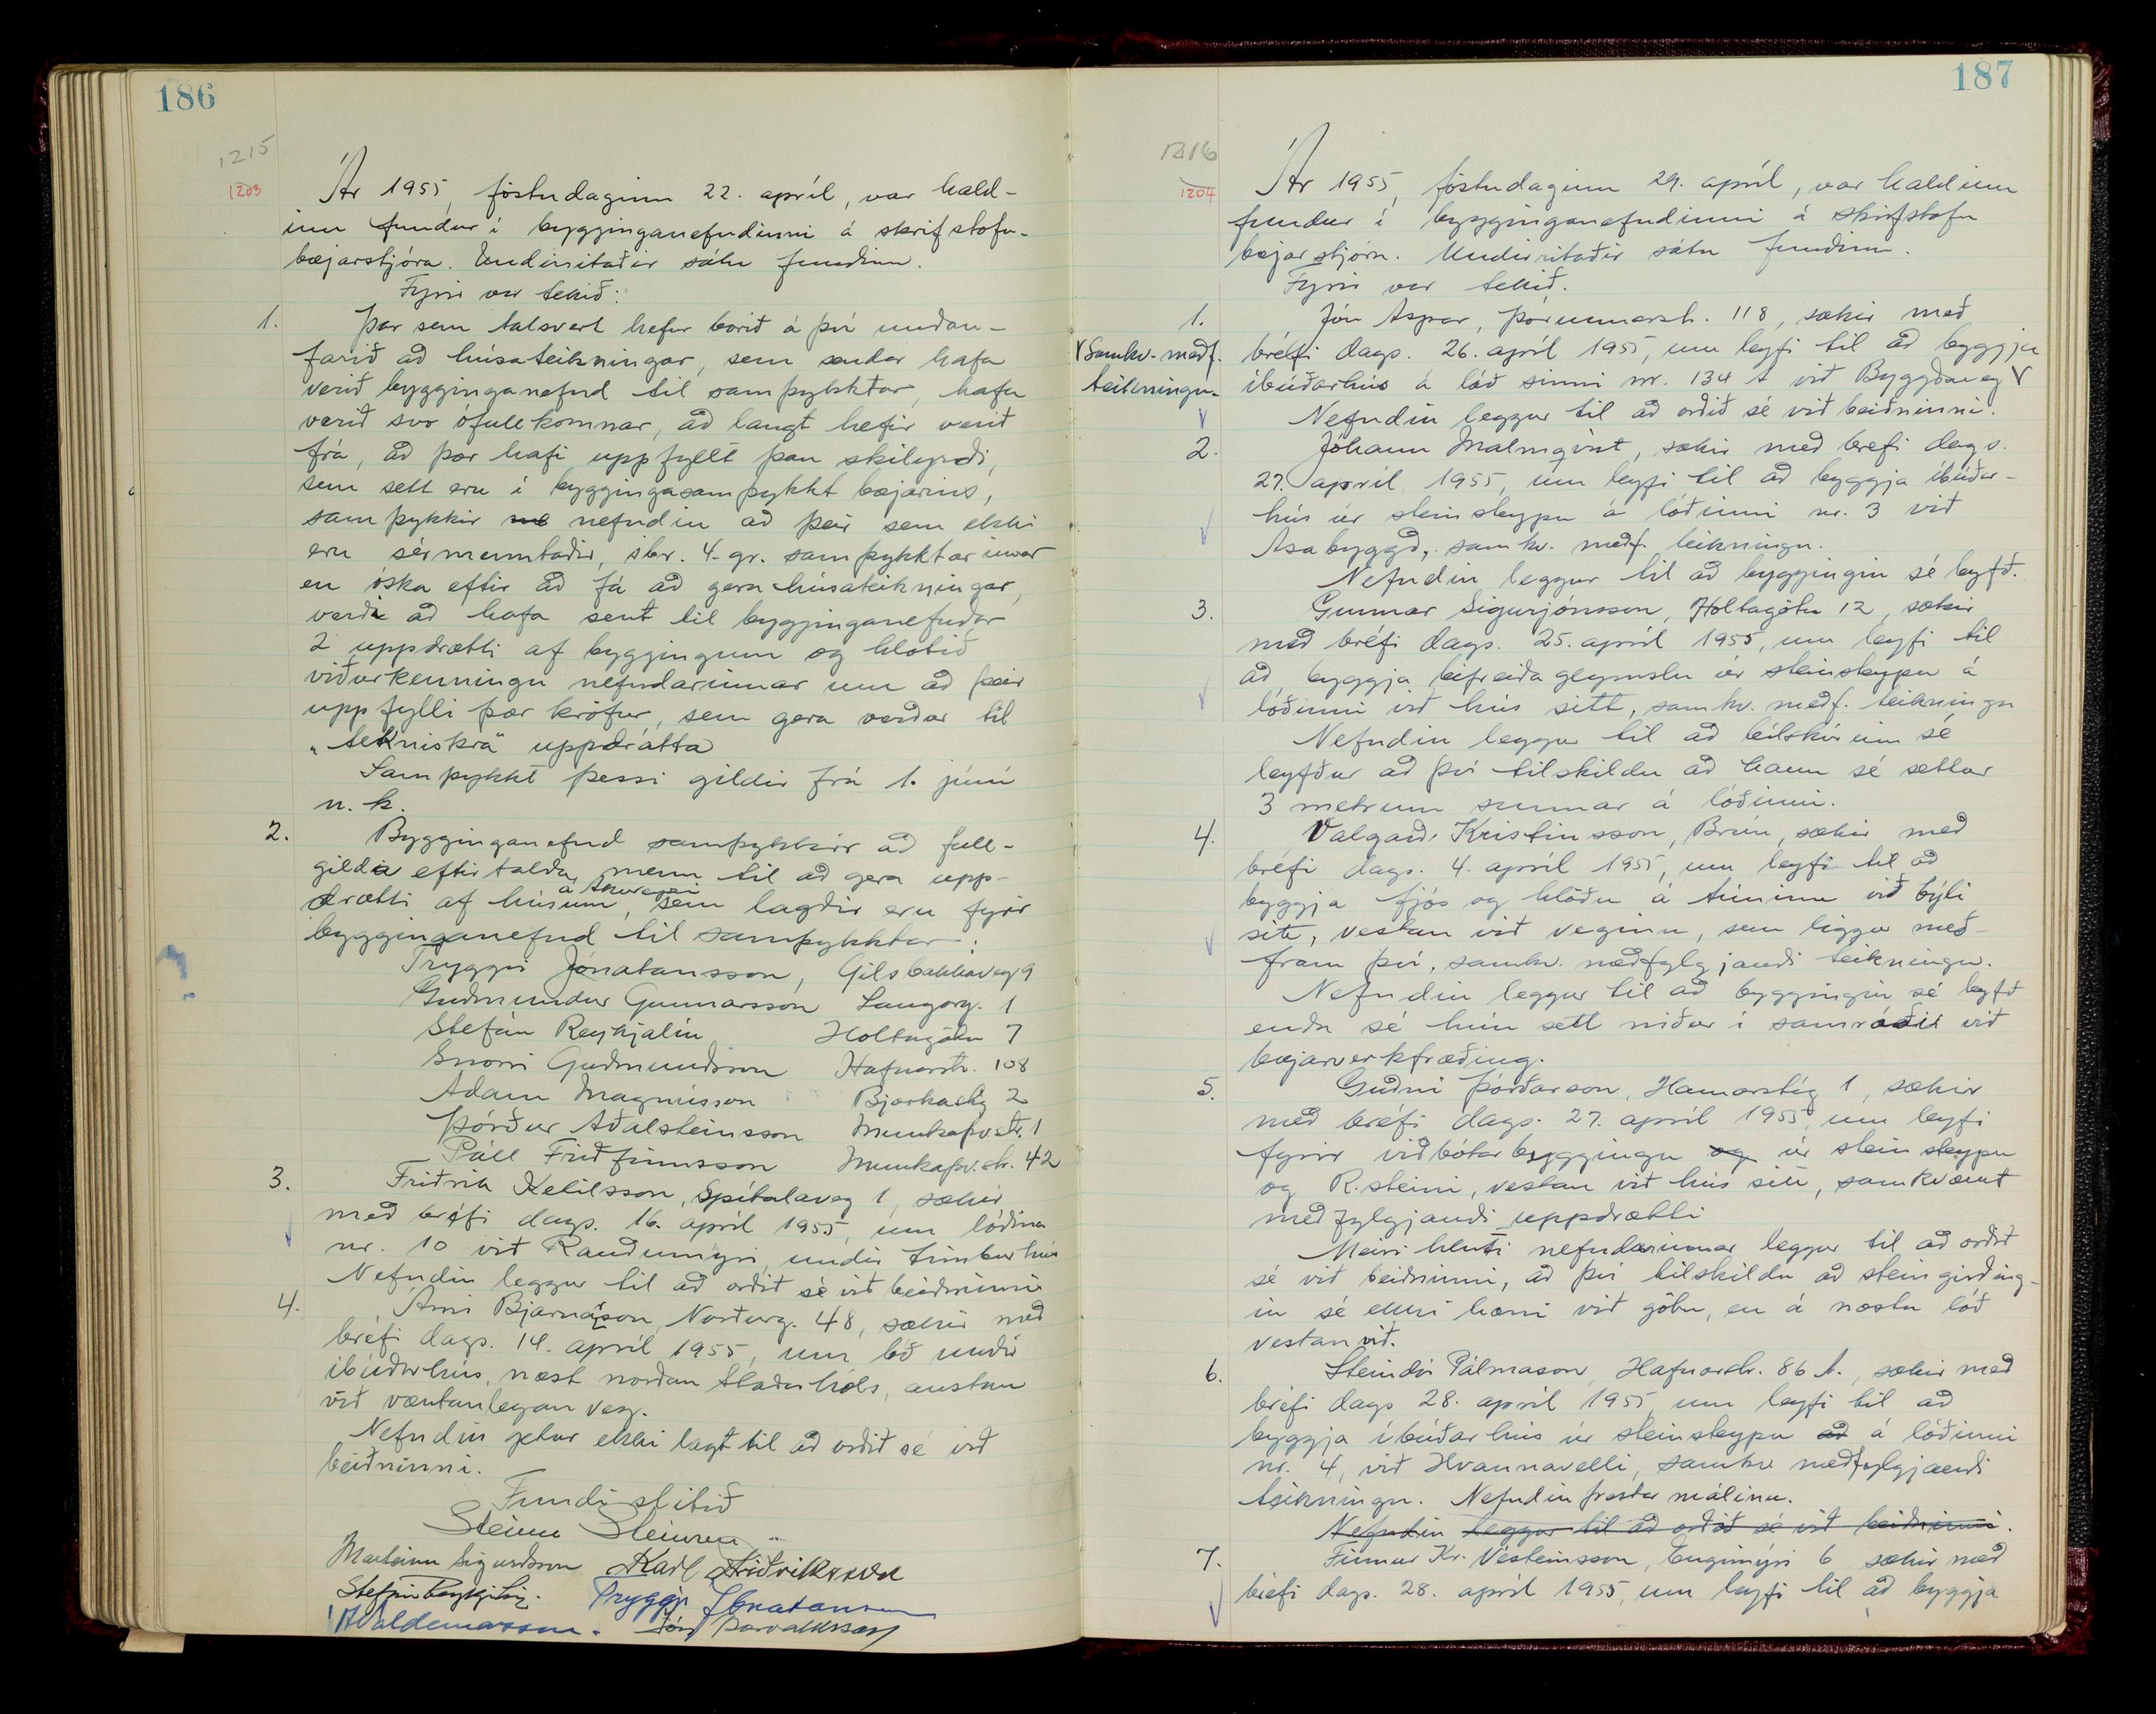 186
1215
1203
Ár 1955, föstudaginn 22. apríl, var hald-
inn fundur í bygginganefndinni á skrifstofu-
bæjarstjóra. Undirritaðir sátu fundinn.
Fyrir var tekið:
1. Þar sem talsvert hefur borið á því undan-
farið að húsateikningar, sem sendar hafa
verið bygginganefnd til samþykktar, hafa
verið svo ófullkomnar, að langt hefir verið
frá, að þær hafi uppfyllt þau skilyrði,
sem sett eru í byggingasamþykkt bæjarins,
samþykkir nefndin að þeir sem ekki
eru sérmenntaðir, sbr. 4. gr. samþykktarinnar
en óska eftir að fá að gera húsateikningar,
verði að hafa sent til bygginganefndar
2 uppdrætti af byggingum og hlotið
viðurkenningu nefndarinnar um að þeir
uppfylli þær kröfur, sem gera verður til
„tekniskra" uppdrátta
Samþykkt þessi gildir frá 1. júní
n.k.
2. Bygginganefnd samþykkir að full-
gilda eftirtalda menn til að gera upp-
drætti af húsum, á Akureyri sem lagðir eru fyrir
bygginganefnd til samþykktar:
Tryggvi Jónatansson, Gilsbakkaveg 9
Guðmundur Gunnarsson Laugarg. 1
Stefán Reykjalín Holtagötu 7
Snorri Guðmundsson Hafnarstr. 108
Adam Magnússon Bjarkastíg 2
Þórður Aðalsteinsson Munkaþv.str. 1
Páll Friðfinnsson Munkaþv.str. 42
3. Friðrik Ketilsson, Spítalaveg 1, sækir
með bréfi dags. 16. apríl 1955, um lóðina
nr. 10 við Rauðumýri, undir timburhús
Nefndin leggur til að orðið sé við beiðninni
4. Árni Bjarnason, Norðurg. 48, sækir með
bréfi dags. 14. apríl 1955, um lóð undir
íbúðarhús, næst norðan Staðarhóls, austan
við væntanlegan veg.
Nefndin getur ekki lagt til að orðið sé við
beiðninni.
Fundi slitið
Steinn Steinsen
Marteinn Sigurðsson Karl Friðriksson
Stefán Reykjalín. Tryggvi Jónatansson
Valdemarsson. Jón Þorvaldsson
187
1216
1204
Ár 1955, föstudaginn 29. apríl, var haldinn
fundur í bygginganefndinni á skrifstofu
bæjarstjóra. Undirritaðir sátu fundinn.
Fyrir var tekið.
1. Jón Aspar, Þórunnarstr. 118, sækir með
V Samkv. meðf. bréfi dags. 26. apríl 1955, um leyfi til að byggja
teikningu. íbúðarhús á lóð sinni nr. 134 A við Byggðaveg V
Nefndin leggur til að orðið sé við beiðninni.
2. Jóhann Malmqvist, sækir með bréfi dags.
27. apríl 1955, um leyfi til að byggja íbúðar-
hús úr steinsteypu á lóðinni nr. 3 við
Ásabyggð, samkv. meðf. teikningu.
Nefndin leggur til að byggingin sé leyfð.
3. Gunnar Sigurjónsson, Holtagötu 12, sækir
með bréfi dags. 25. apríl 1955, um leyfi til
að byggja bifreiðageymslu úr steinsteypu á
lóðinni við hús sitt, samkv. meðf. teikningu
Nefndin leggur til að bílskúrinn sé
leyfður að því tilskildu að hann sé settur
3 metrum sunnar á lóðinni.
4. Valgarð Kristinsson, Brún, sækir með
bréfi dags. 4. apríl 1955, um leyfi til að
byggja fjós og hlöðu á túninu við býli
sitt, vestan við veginn, sem liggur með-
fram því, samkv. meðfylgjandi teikningu.
Nefndin leggur til að byggingin sé leyfð
enda sé hún sett niður í samráði við
bæjarverkfræðing.
5. Guðni Þórðarson, Hamarstíg 1, sækir
með bréfi dags. 27. apríl 1955, um leyfi
fyrir viðbótarbyggingu og úr steinsteypu
og R.steini, vestan við hús sitt, samkvæmt
meðfylgjandi uppdrætti
Meiri hluti nefndarinnar leggur til að orðið
sé við beiðninni, að því tilskildu að steingirðing-
in sé ekki hærri við götu, en á næstu lóð
vestan við.
6. Steindór Pálmason, Hafnarstr. 86 A., sækir með
bréfi dags 28. apríl 1955 um leyfi til að
byggja íbúðarhús úr steinsteypu að á lóðinni
nr. 4, við Hvannavelli, samkv meðfylgjandi
teikningu. Nefndin frestar málinu.
Nefndin leggur til að orðið sé við beiðninni.
7. Finnur Kr. Vésteinsson, Engimýri 6 sækir með
bréfi dags. 28. apríl 1955, um leyfi til að byggja